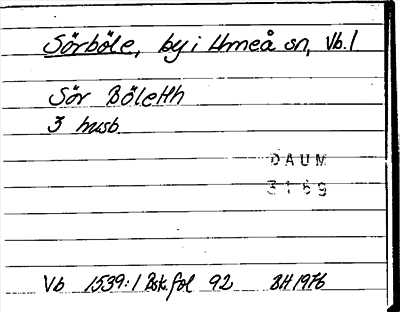 Sörböle, by i Umeå sn, Vb. 1
Sör Böletth
3 husb
DAUM
3169
Vb 1539:1 Bsk. fol 92 BH 1976